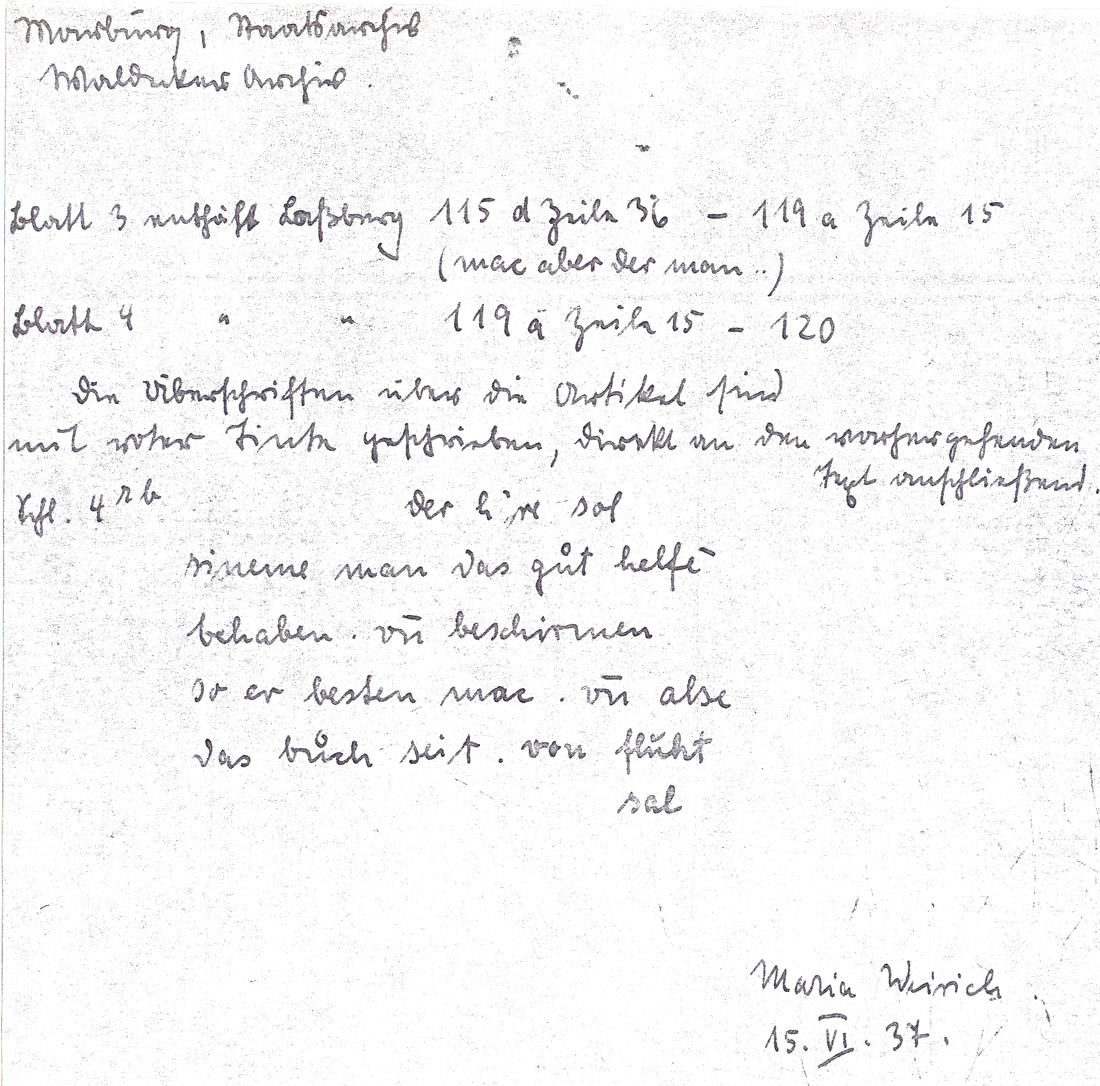 Marburg, Staatsarchiv
Waldecker Archiv.
Blatt 3 enthält Laßberg 115 d Zeile 36 – 119 a Zeile 15
(mac aber der man..)
Blatt 4 " " 119 a Zeile 15 – 120
Die Überschriften über die Artikel sind
mit roter Tinte geschrieben, direkt an den vorhergehenden
Text anschließend.
Schl. 4 der sol
sineme man das gůt helfē
behaben . vn̄ beschirmen
so er besten mac . vn̄ alse
das bůch seit . von fluht
sal
Maria Weirich
15. VI. 37.